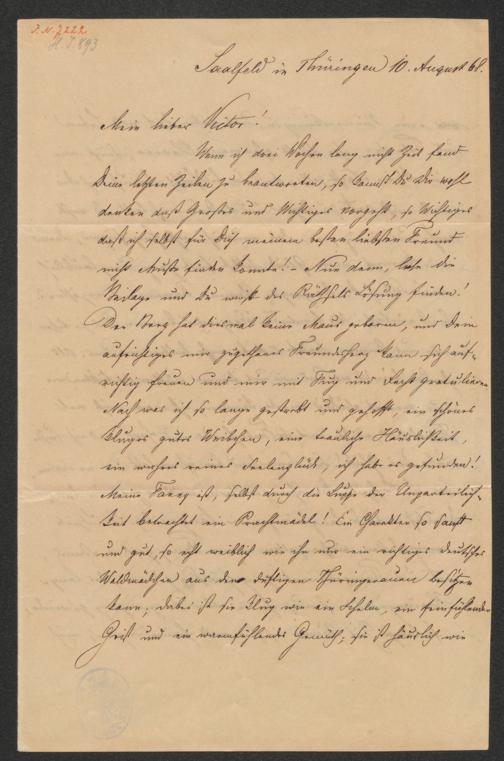 J.N. 7222
H.I. 893
Saalfeld in Thüringen 10. August 68.
Mein lieber Victor!
Wenn ich drei Wochen lang nicht Zeit fand
Deine letzten Zeilen zu beantworten, so kannst Du Dir wohl
denken daß Großes und Wichtiges vorgeht, so Wichtiges
daß ich selbst für Dich meinen besten liebsten Freund
nicht Muße finden konnte! – Nun denn, lese die
Beilage und Du wirst des Räthsels Lösung finden!
Der Berg hat diesmal keine Maus geboren, und Dein
aufrichtiges mir zugethanes Freundesherz kann sich auf-
richtig freuen und mir mit Fug und Recht gratuliren
Nach was ich so lange gestrebt und gehofft, ein schönes
kluges gutes Weibchen, eine trauliche Häuslichkeit,
ein wahres reines Seelenglück, ich hab es gefunden!
Meine Fanny ist, selbst durch die Lupe der Unparteilich-
keit betrachtet ein Prachtmädel! Ein Charakter so sanft
und gut, so echt weiblich wie ihn nur ein richtiges deutsches
Waldmädchen aus den duftigen Thüringerauen besitzen
kann; dabei ist sie klug wie ein Schelm, ein feinfühlender
Geist und ein warmfühlendes Gemüth; sie ist häuslich wie